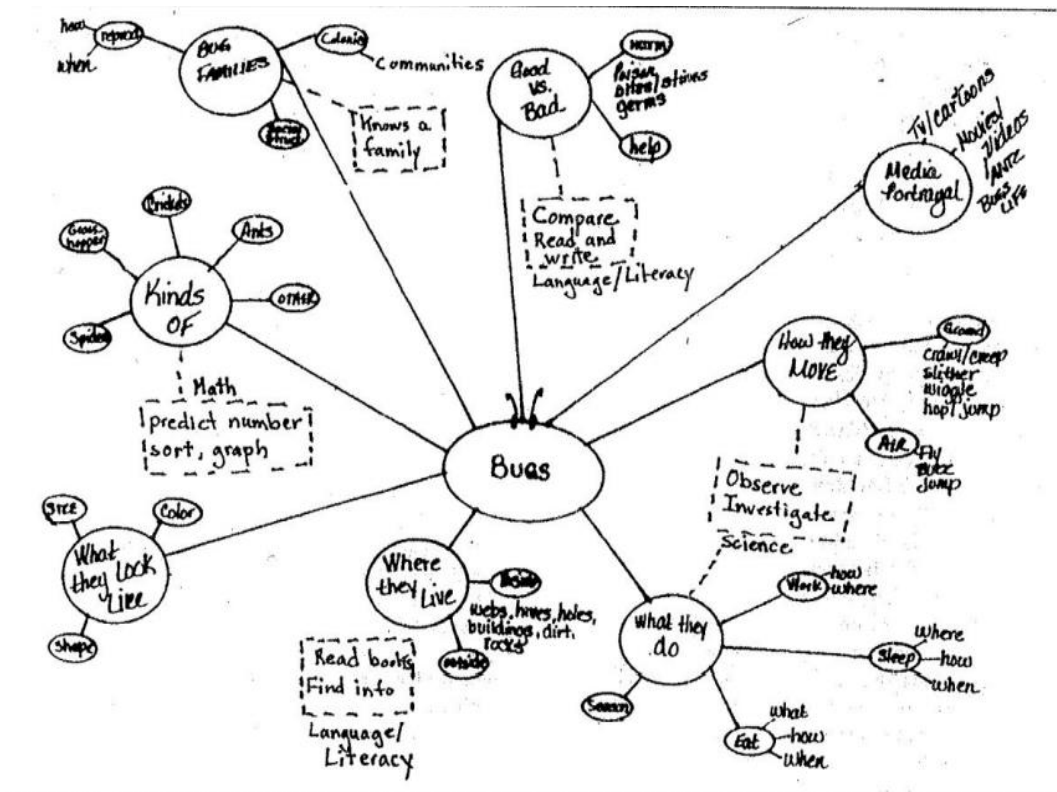 how
reprod
when
BUG
FAMILIES
Colonies
Communities
Social
Struct.
Knows a
family
Good
vs.
Bad
Harm
Poison
bites/stings
germs
help
Compare
Read and
write
Language/Literacy
Media
Portragal
TV/cartoons
Movies/
Videos
ANTZ
BUGS
LIFE
Kinds
OF
Grass-
hopper
Crickets
Ants
OTHER
Spiders
Math
predict number
sort, graph
How they
MOVE
Ground
crawl/creep
slither
wiggle
hop/jump
AIR
Fly
BUZZ
jump
Observe
Investigate
Science
Bugs
What
they look
like
SIZE
Color
Shape
Where
they Live
Inside
webs, hives, holes,
buildings, dirt,
rocks
outside
Read books
Find info
Language/
Literacy
What they
do
Work
how
where
Sleep
where
how
when
Eat
what
how
when
Season